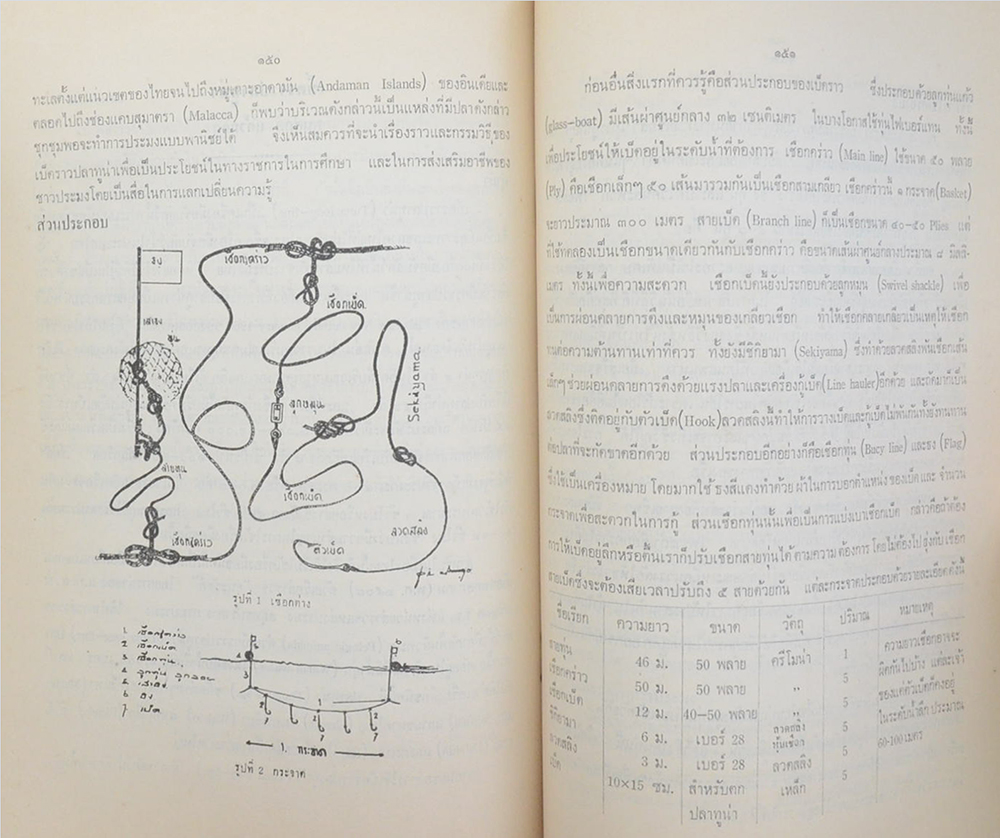 ๑๕๐
ทะเลตั้งแต่แนวเขตของไทยจนไปถึงหมู่เกาะอาดามัน (Andaman Islands) ของอินเดียและ
ตลอดไปถึงช่องแคบสุมาตรา (Malacca) ก็พบว่าบริเวณดังกล่าวนี้เป็นแหล่งที่มีปลาดังกล่าว
ชุกชุมพอจะทำการประมงแบบพานิชย์ได้ จึงเห็นสมควรที่จะนำเรื่องราวและกรรมวิธีของ
เบ็ดราวปลาทูน่าเพื่อเป็นประโยชน์ในทางราชการในการศึกษา และในการส่งเสริมอาชีพของ
ชาวประมงโดยเป็นสื่อในการแลกเปลี่ยนความรู้
ส่วนประกอบ
ธง
เสาธง
ทุ่น
สายทุ่น
เชือกคร่าว
เชือกเบ็ด
ลูกหมุน
Sekiyama
เชือกเบ็ด
ลวดสลิง
ตัวเบ็ด
รูปที่ 1 เชือกต่าง
1 เชือกคร่าว
2 เชือกเบ็ด
3 เชือกทุ่น
4 ลูกทุ่น
5 เสาธง
6 ธง
7 เบ็ด
1. กระชาด
รูปที่ 2 กระจาด
๑๕๑
ก่อนอื่นสิ่งแรกที่ควรรู้คือส่วนประกอบของเบ็ดราว ซึ่งประกอบด้วยลูกทุ่นแก้ว
(glass-boat) มีเส้นผ่าศูนย์กลาง ๓๒ เซนติเมตร ในบางโอกาสใช้ทุ่นไฟเบอร์แทน ทั้งนี้
เพื่อประโยชน์ให้เบ็ดอยู่ในระดับน้ำที่ต้องการ เชือกคร่าว (Main line) ใช้ขนาด ๕๐ พลาย
(Ply) คือเชือกเล็กๆ ๕๐ เส้นมารวมกันเป็นเชือกสามเกลียว เชือกคร่าวนี้ ๑ กระจาด(Basket)
จะยาวประมาณ ๓๐๐ เมตร สายเบ็ด (Branch line) ก็เป็นเชือกขนาด ๔๐-๕๐ Plies แต่
ที่ใช้ทดลองเป็นเชือกขนาดเดียวกันกับเชือกคร่าว คือขนาดเส้นผ่าศูนย์กลางประมาณ ๘ มิลลิ-
เมตร ทั้งนี้เพื่อความสะดวก เชือกเบ็ดนี้ยังประกอบด้วยลูกหมุน (Swivel shackle) เพื่อ
เป็นการผ่อนคลายการดึงและหมุนของเกลียวเชือก ทำให้เชือกคลายเกลียวเป็นเหตุให้เชือก
ทนต่อความต้านทานเท่าที่ควร ทั้งยังมีซิกิยามา (Sekiyama) ซึ่งทำด้วยลวดสลิงพันเชือกเส้น
เล็กๆช่วยผ่อนคลายการดึงด้วยแรงปลาและเครื่องกู้เบ็ด(Line hauler)อีกด้วย และถัดมาก็เป็น
ลวดสลิงซึ่งติดอยู่กับตัวเบ็ด(Hook)ลวดสลิงนี้ทำให้การวางเบ็ดและกู้เบ็ดไม่พันกันทั้งยังทนทาน
ต่อปลาที่จะกัดขาดอีกด้วย ส่วนประกอบอีกอย่างก็คือเชือกทุ่น (Bucy line) และธง (Flag)
ซึ่งใช้เป็นเครื่องหมาย โดยมากใช้ ธงสีแดงทำด้วย ผ้าในการบอกตำแหน่ง ของเบ็ดและ จำนวน
กระจาดเพื่อสะดวกในการกู้ ส่วนเชือกทุ่นนั้นเพื่อเป็นการแบ่งเบาเชือกเบ็ด กล่าวคือถ้าต้อง
การให้เบ็ดอยู่ลึกหรือตื้นเราก็ปรับเชือกสายทุ่นได้ ตามความ ต้องการ โดยไม่ต้องไป ยุ่งกับเชือก
สายเบ็ดซึ่งจะต้องเสียเวลาปรับถึง ๕ สายด้วยกัน แต่ละกระจาดประกอบด้วยรายละเอียดดังนี้
ชื่อเรียก ความยาว ขนาด วัตถุ ปริมาณ หมายเหตุ
สายทุ่น 46 ม. 50 พลาย ครีโมน่า 1 ความยาวเชือกอาจจะ
เชือกคร่าว 50 ม. 50 พลาย ,, 5 ผิดกันไปบ้าง แต่ละเจ้า
เชือกเบ็ด 12 ม. 40-50 พลาย ,, 5 ของแต่ตัวเบ็ดก็คงอยู่
ซิกิยามา 6 ม. เบอร์ 28 ลวดสลิง หุ้มเชือก 5 ในระดับน้ำลึก ประมาณ
ลวดสลิง 3 ม. เบอร์ 28 ลวดสลิง 5 60-100 เมตร
เบ็ด 10×15 ซม. สำหรับตก เหล็ก 5
ปลาทูน่า